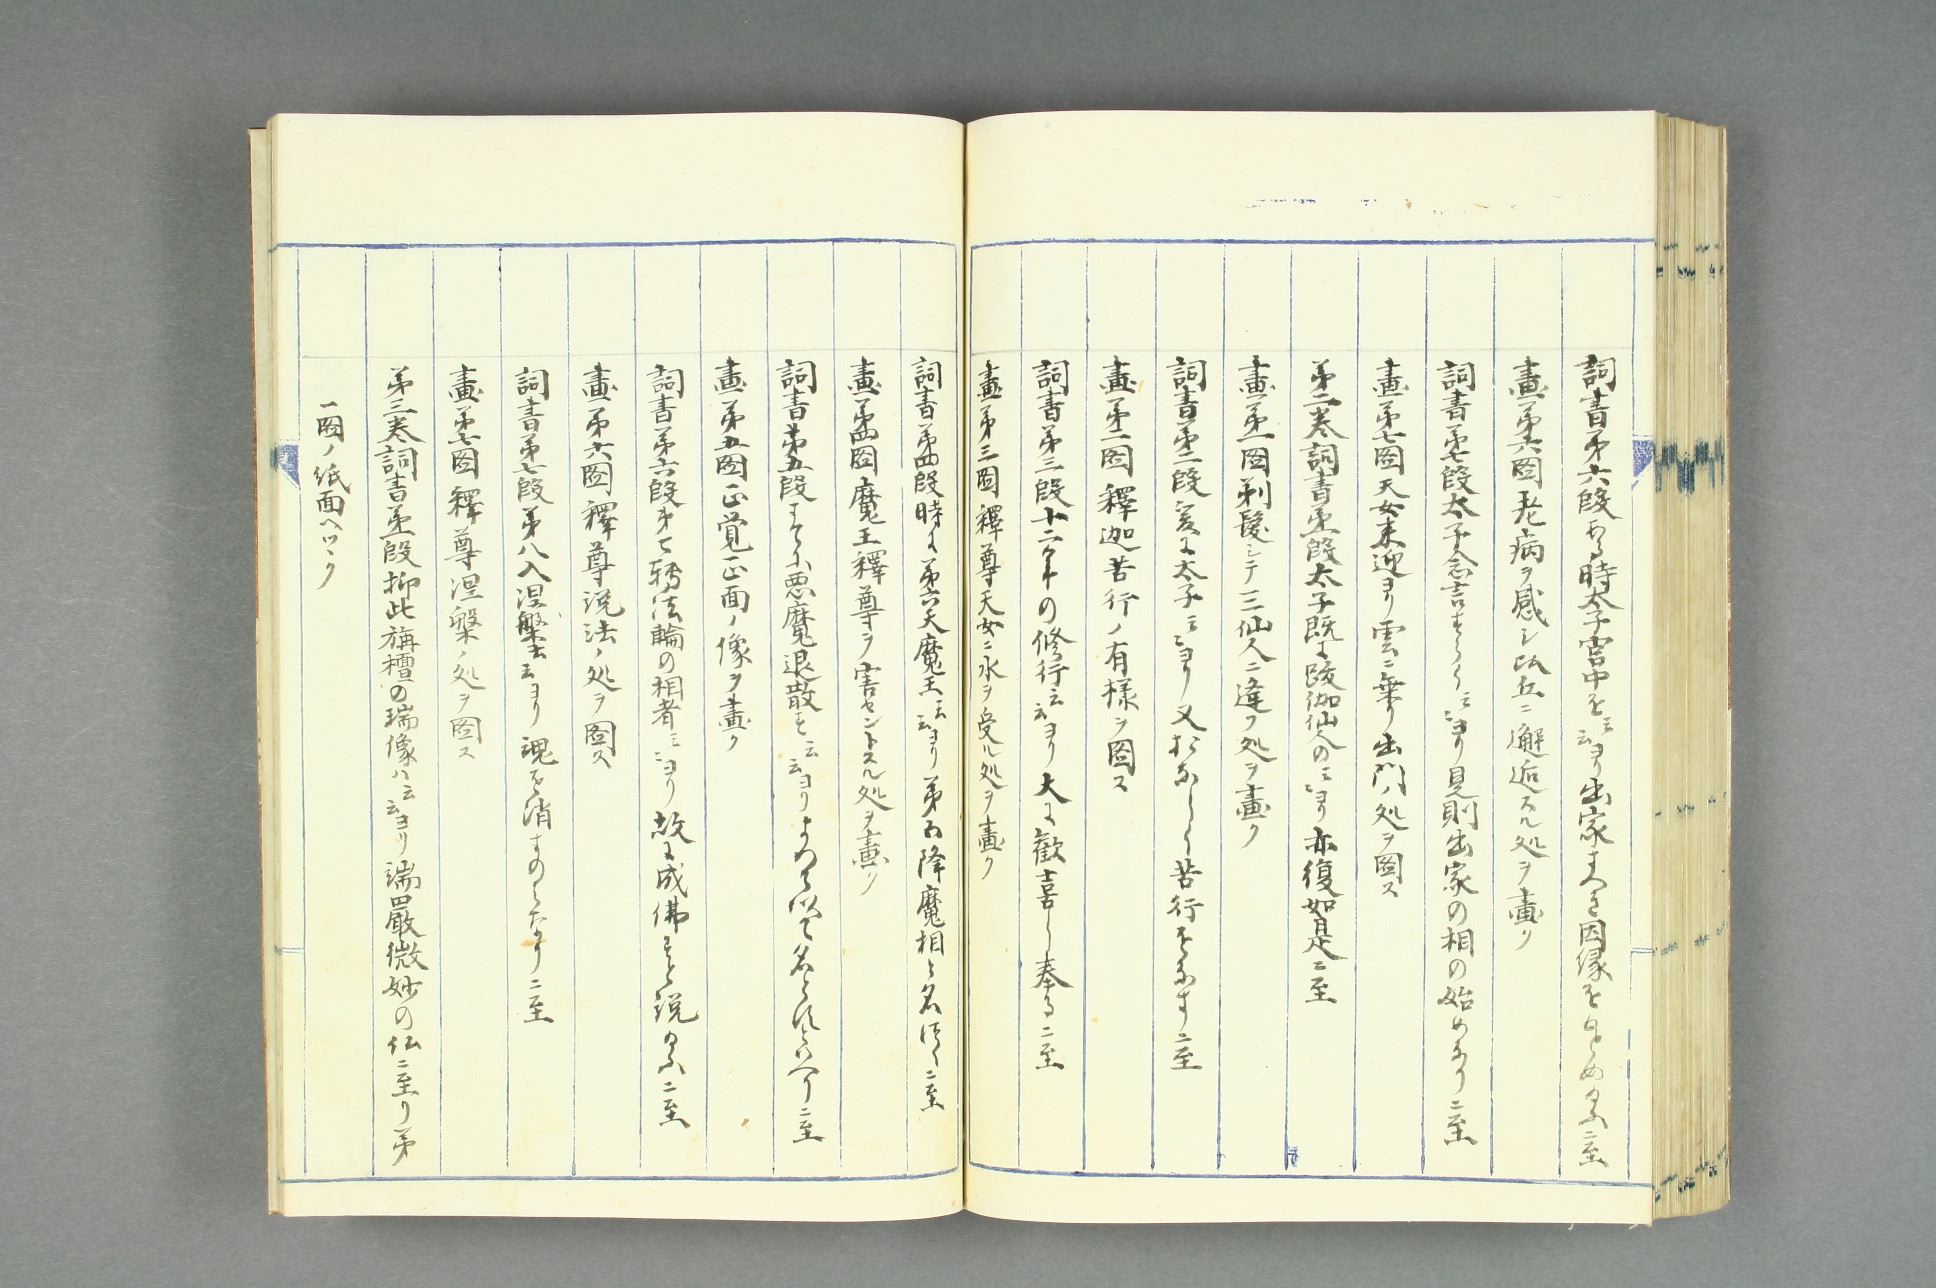 詞書第六段ある時太子宮中を云云ヨリ出家すへき因縁をもとめ給ふニ至
畫第六圖老病ヲ感シ比丘ニ邂逅スル処ヲ畫ク
詞書第七段太子念言すらく云云ヨリ是則出家の相の始めなりニ至
畫第七圖天女来迎ヨリ雲ニ乗リ出門ノ処ヲ圖ス
第二巻詞書第一段太子既に跋伽仙人の云云ヨリ亦復如是ニ至
畫第一圖剃髪シテ三仙人ニ逢フ処ヲ畫ク
詞書第二段爰に太子云云ヨリ又おなしく苦行をなすニ至
畫第二圖釋迦苦行ノ有様ヲ圖ス
詞書第三段十二年の修行云云ヨリ大に歓喜し奉るニ至
畫第三圖釋尊天女ニ水ヲ受ル処ヲ畫ク
詞書第四段時に第六天魔王云云ヨリ第五降魔相と名付くニ至
畫第四圖魔王釋尊ヲ害セントスル処ヲ畫ク
詞書第五段すてに悪魔退散を云云ヨリよつて以て名とすといへりニ至
畫第五圖正覚正面ノ像ヲ畫ク
詞書第六段第七轉法輪の相者云云ヨリ故に成佛すと説給ふニ至
畫第六圖釋尊説法ノ処ヲ圖ス
詞書第七段第八入涅槃云云ヨリ魂を消すのみなりニ至
畫第七圖釋尊涅槃ノ処ヲ圖ス
第三巻詞書第一段抑此旃檀の瑞像ハ云云ヨリ端嚴微妙の仏ニ至リ第
一圖ノ紙面ヘツヽク